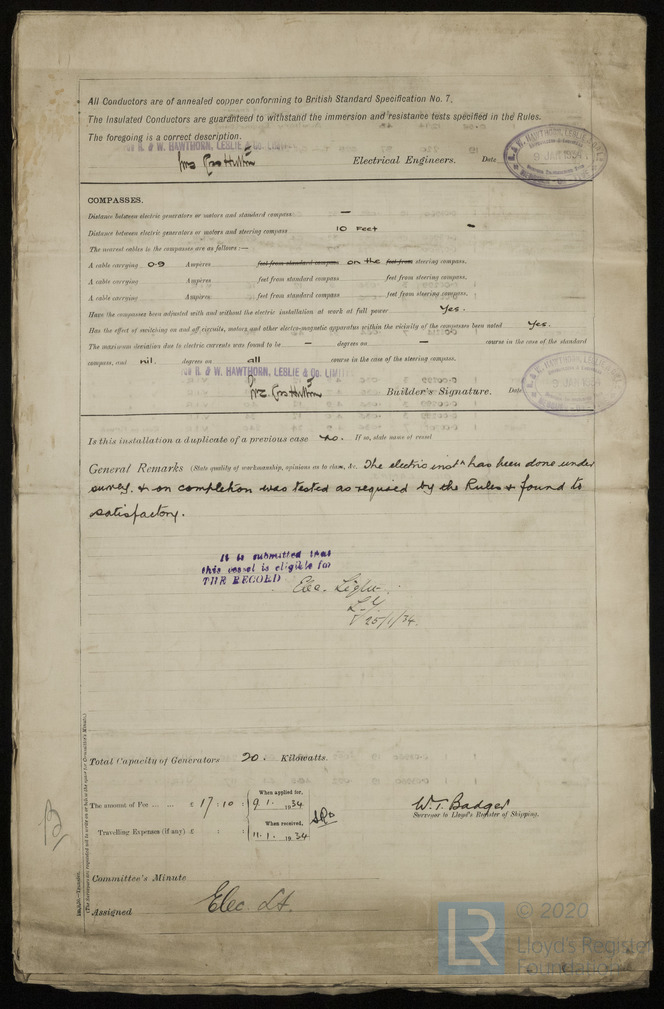 All Conductors are of annealed copper conforming to British Standard Specification No. 7.
The Insulated Conductors are guaranteed to withstand the immersion and resistance tests specified in the Rules.
The foregoing is a correct description.
R. & W. HAWTHORN, LESLIE & Co. LIMITED
Electrical Engineers. Date 9 JAN 1934
COMPASSES.
Distance between electric generators or motors and standard compass —
Distance between electric generators or motors and steering compass 10 Feet
The nearest cables to the compasses are as follows:—
A cable carrying 0.9 Ampères feet from standard compass on the feet from steering compass.
A cable carrying Ampères feet from standard compass feet from steering compass.
A cable carrying Ampères feet from standard compass feet from steering compass.
Have the compasses been adjusted with and without the electric installation at work at full power Yes.
Has the effect of switching on and off circuits, motors and other electro-magnetic apparatus within the vicinity of the compasses been noted Yes.
The maximum deviation due to electric currents was found to be — degrees on — course in the case of the standard
compass, and nil. degrees on all course in the case of the steering compass.
R. & W. HAWTHORN, LESLIE & Co. LIMITED
Builder's Signature. Date 9 JAN 1934
Is this installation a duplicate of a previous case no. If so, state name of vessel
General Remarks (State quality of workmanship, opinions as to class, &c. The electric instn has been done under
survey. & on completion was tested as required by the Rules & found to
satisfactory.
It is submitted that
this vessel is eligible for
THE RECORD Elec. Light.
25/1/34.
Total Capacity of Generators 20. Kilowatts.
The amount of Fee ... ... £ 17 : 10 : When applied for, 9. 1. 1934
Travelling Expenses (if any) £ : : When received, 11. 1. 1934
W. T. Badger
Surveyor to Lloyd's Register of Shipping.
Committee's Minute
Assigned Elec. Lt.
(The Surveyors are requested not to write on or below the space for Committee's Minute.)
LR
© 2020
Lloyd's Register
Foundation